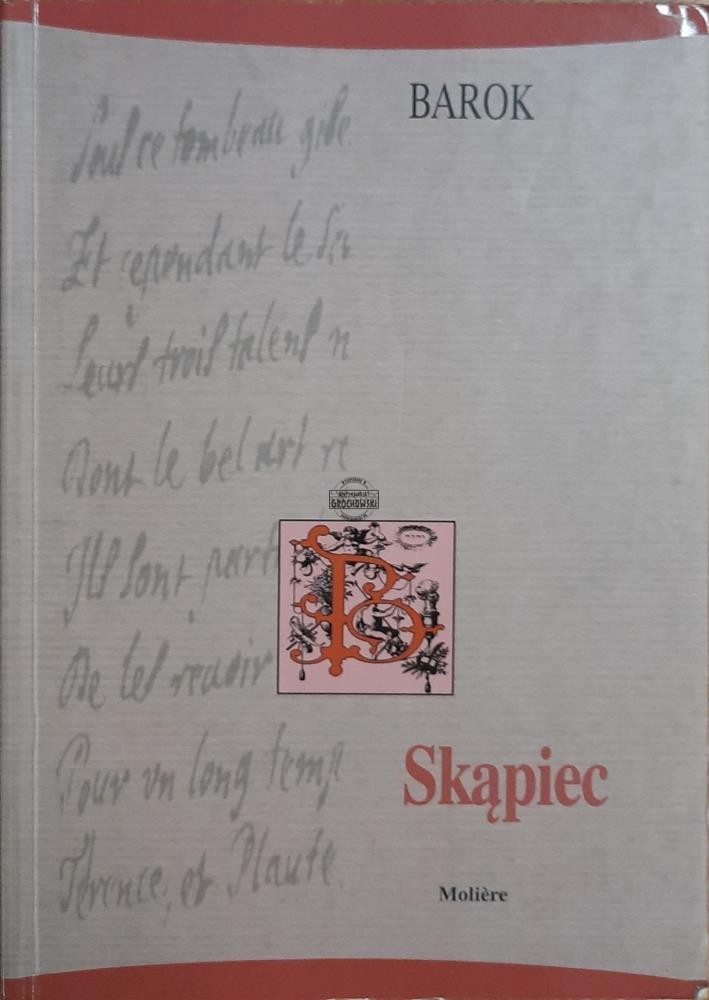 BAROK
Souls ce tombeau gise
Et cependant le Seu
Leurs trois talens n
Dont le bel art re
Ils sont parti
De les revoir
Pour un long temps
Térence, et Plaute
GROCHOWSKI
B
Skąpiec
Molière